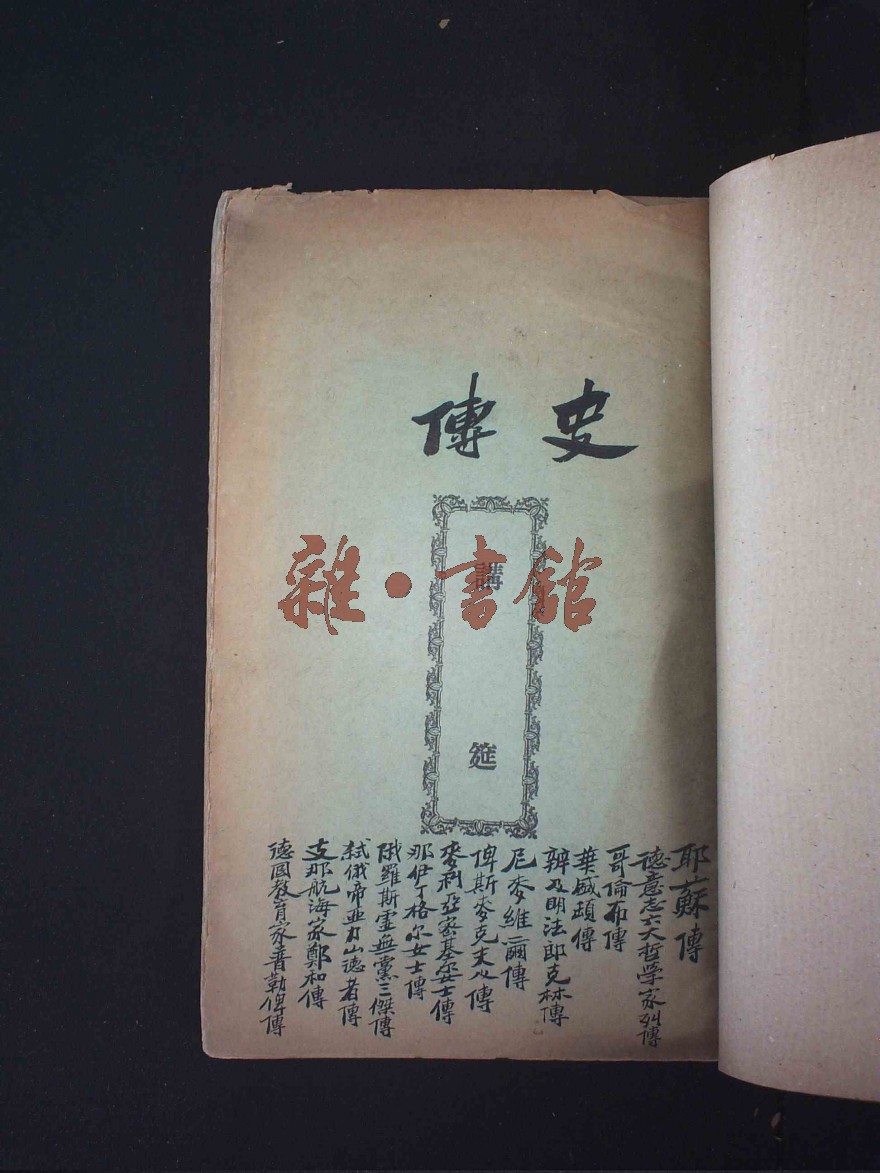 史傳
講筵
雜·書館
耶蘇傳
德意志六大哲學家列傳
哥倫布傳
華盛頓傳
辨及明法郎克林傳
尼麥維爾傳
俾斯麥克夫人傳
麥利亞密基爾女士傳
那伊丁格尔女士傳
俄羅斯虛無黨三傑傳
弒俄帝亞力山德者傳
支那航海家鄭和傳
德國教育家普勒俾傳